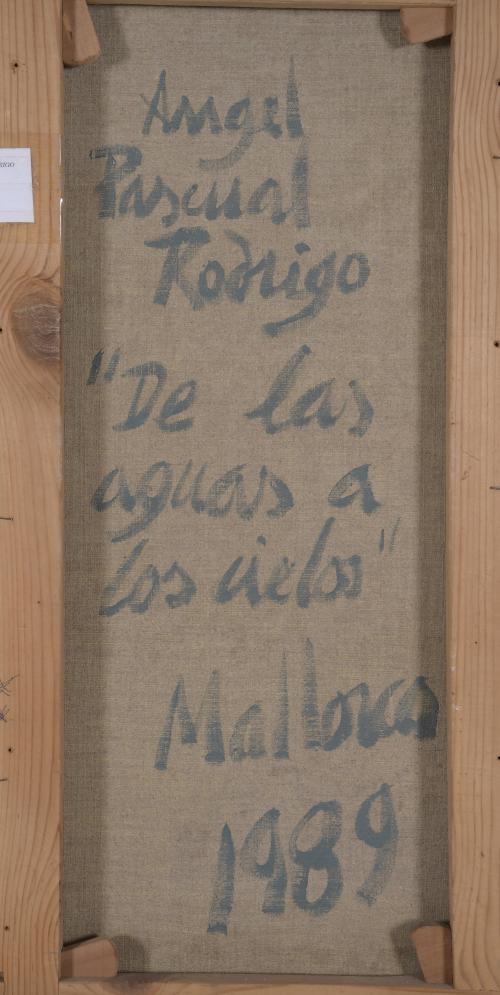 Angel
Pascual
Rodrigo
"De las
aguas a
los cielos"
Mallorca
1989
RIGO